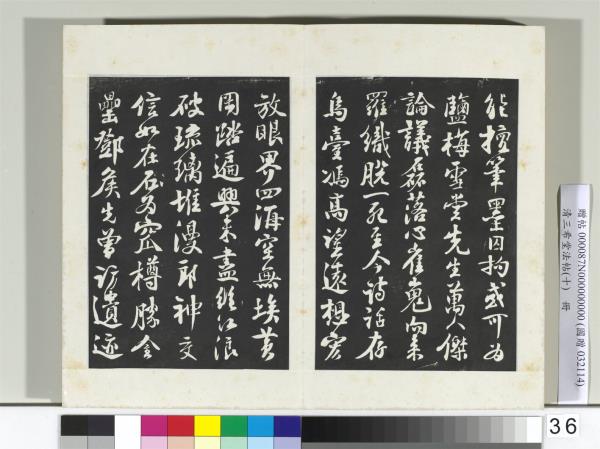 能擅筆墨囚拘或可為
鹽梅雪堂先生萬人傑
論議磊落心崔嵬向來
羅織脫一死至今詩話存
烏臺馮高望遠想宏
放眼界四海空無埃黃
岡踏遍興未盡絕江浪
破琉璃堆漫郎神交
信如在石為窊樽勝金
罍鄧侯先曾訪遺迹
贈帖 000087N000000000 (國贈 032114)
清三希堂法帖(十) 冊
36